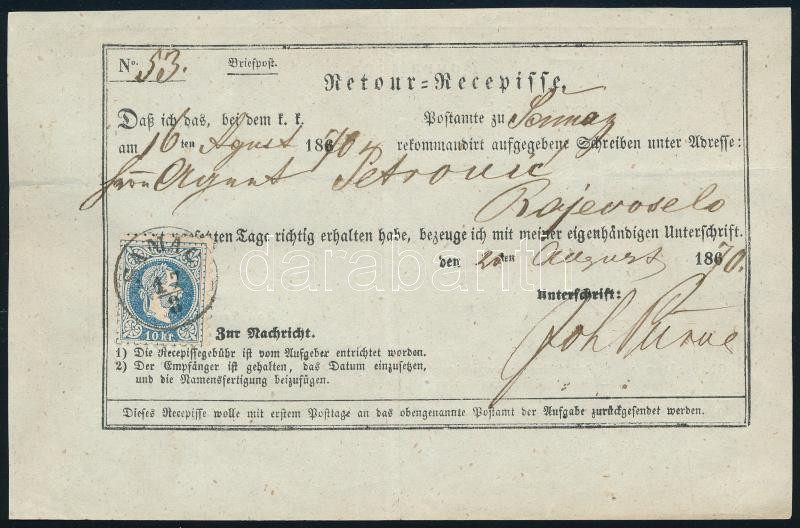 No. 53. Briefpost.
Retour-Recepisse.
Daß ich das, bei dem k. k. Postamte zu Samaz
am 16ten Agust 1870 rekommandirt aufgegebene Schreiben unter Adresse:
Herrn Agent Petrovic
Rajevoselo
gesetzten Tags richtig erhalten habe, bezeuge ich mit meiner eigenhändigen Unterschrift.
den 20ten August 1870.
Unterschrift:
Joh
SAMAC
17
8
10 kr.
Zur Nachricht.
1) Die Recepissegebühr ist vom Aufgeber entrichtet worden.
2) Der Empfänger ist gehalten, das Datum einzusetzen,
und die Namensfertigung beizufügen.
Dieses Recepisse wolle mit erstem Posttage an das obengenannte Postamt der Aufgabe zurückgesendet werden.
darabanth